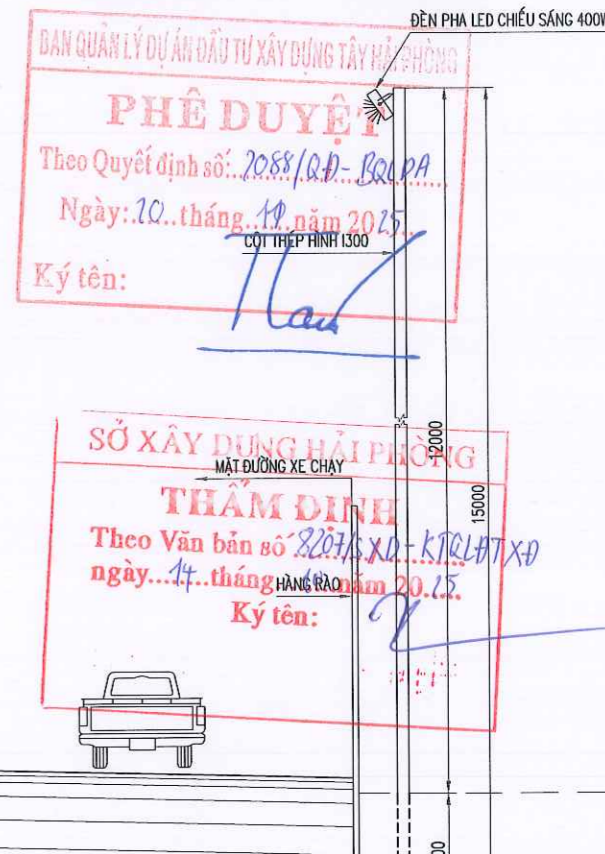 ĐÈN PHA LED CHIẾU SÁNG 400W
BAN QUẢN LÝ DỰ ÁN ĐẦU TƯ XÂY DỰNG TÂY HẢI PHÒNG
PHÊ DUYỆT
Theo Quyết định số: 2088/QĐ-BQLDA
Ngày: 20 tháng năm 2025
CỘT THÉP HÌNH I300
Ký tên:
SỞ XÂY DỰNG HẢI PHÒNG
MẶT ĐƯỜNG XE CHẠY
THẨM ĐỊNH
Theo Văn bản số 8207/SXD-KTQLĐTXD
ngày 14 tháng năm 2025
HÀNG RÀO
Ký tên:
12000
15000